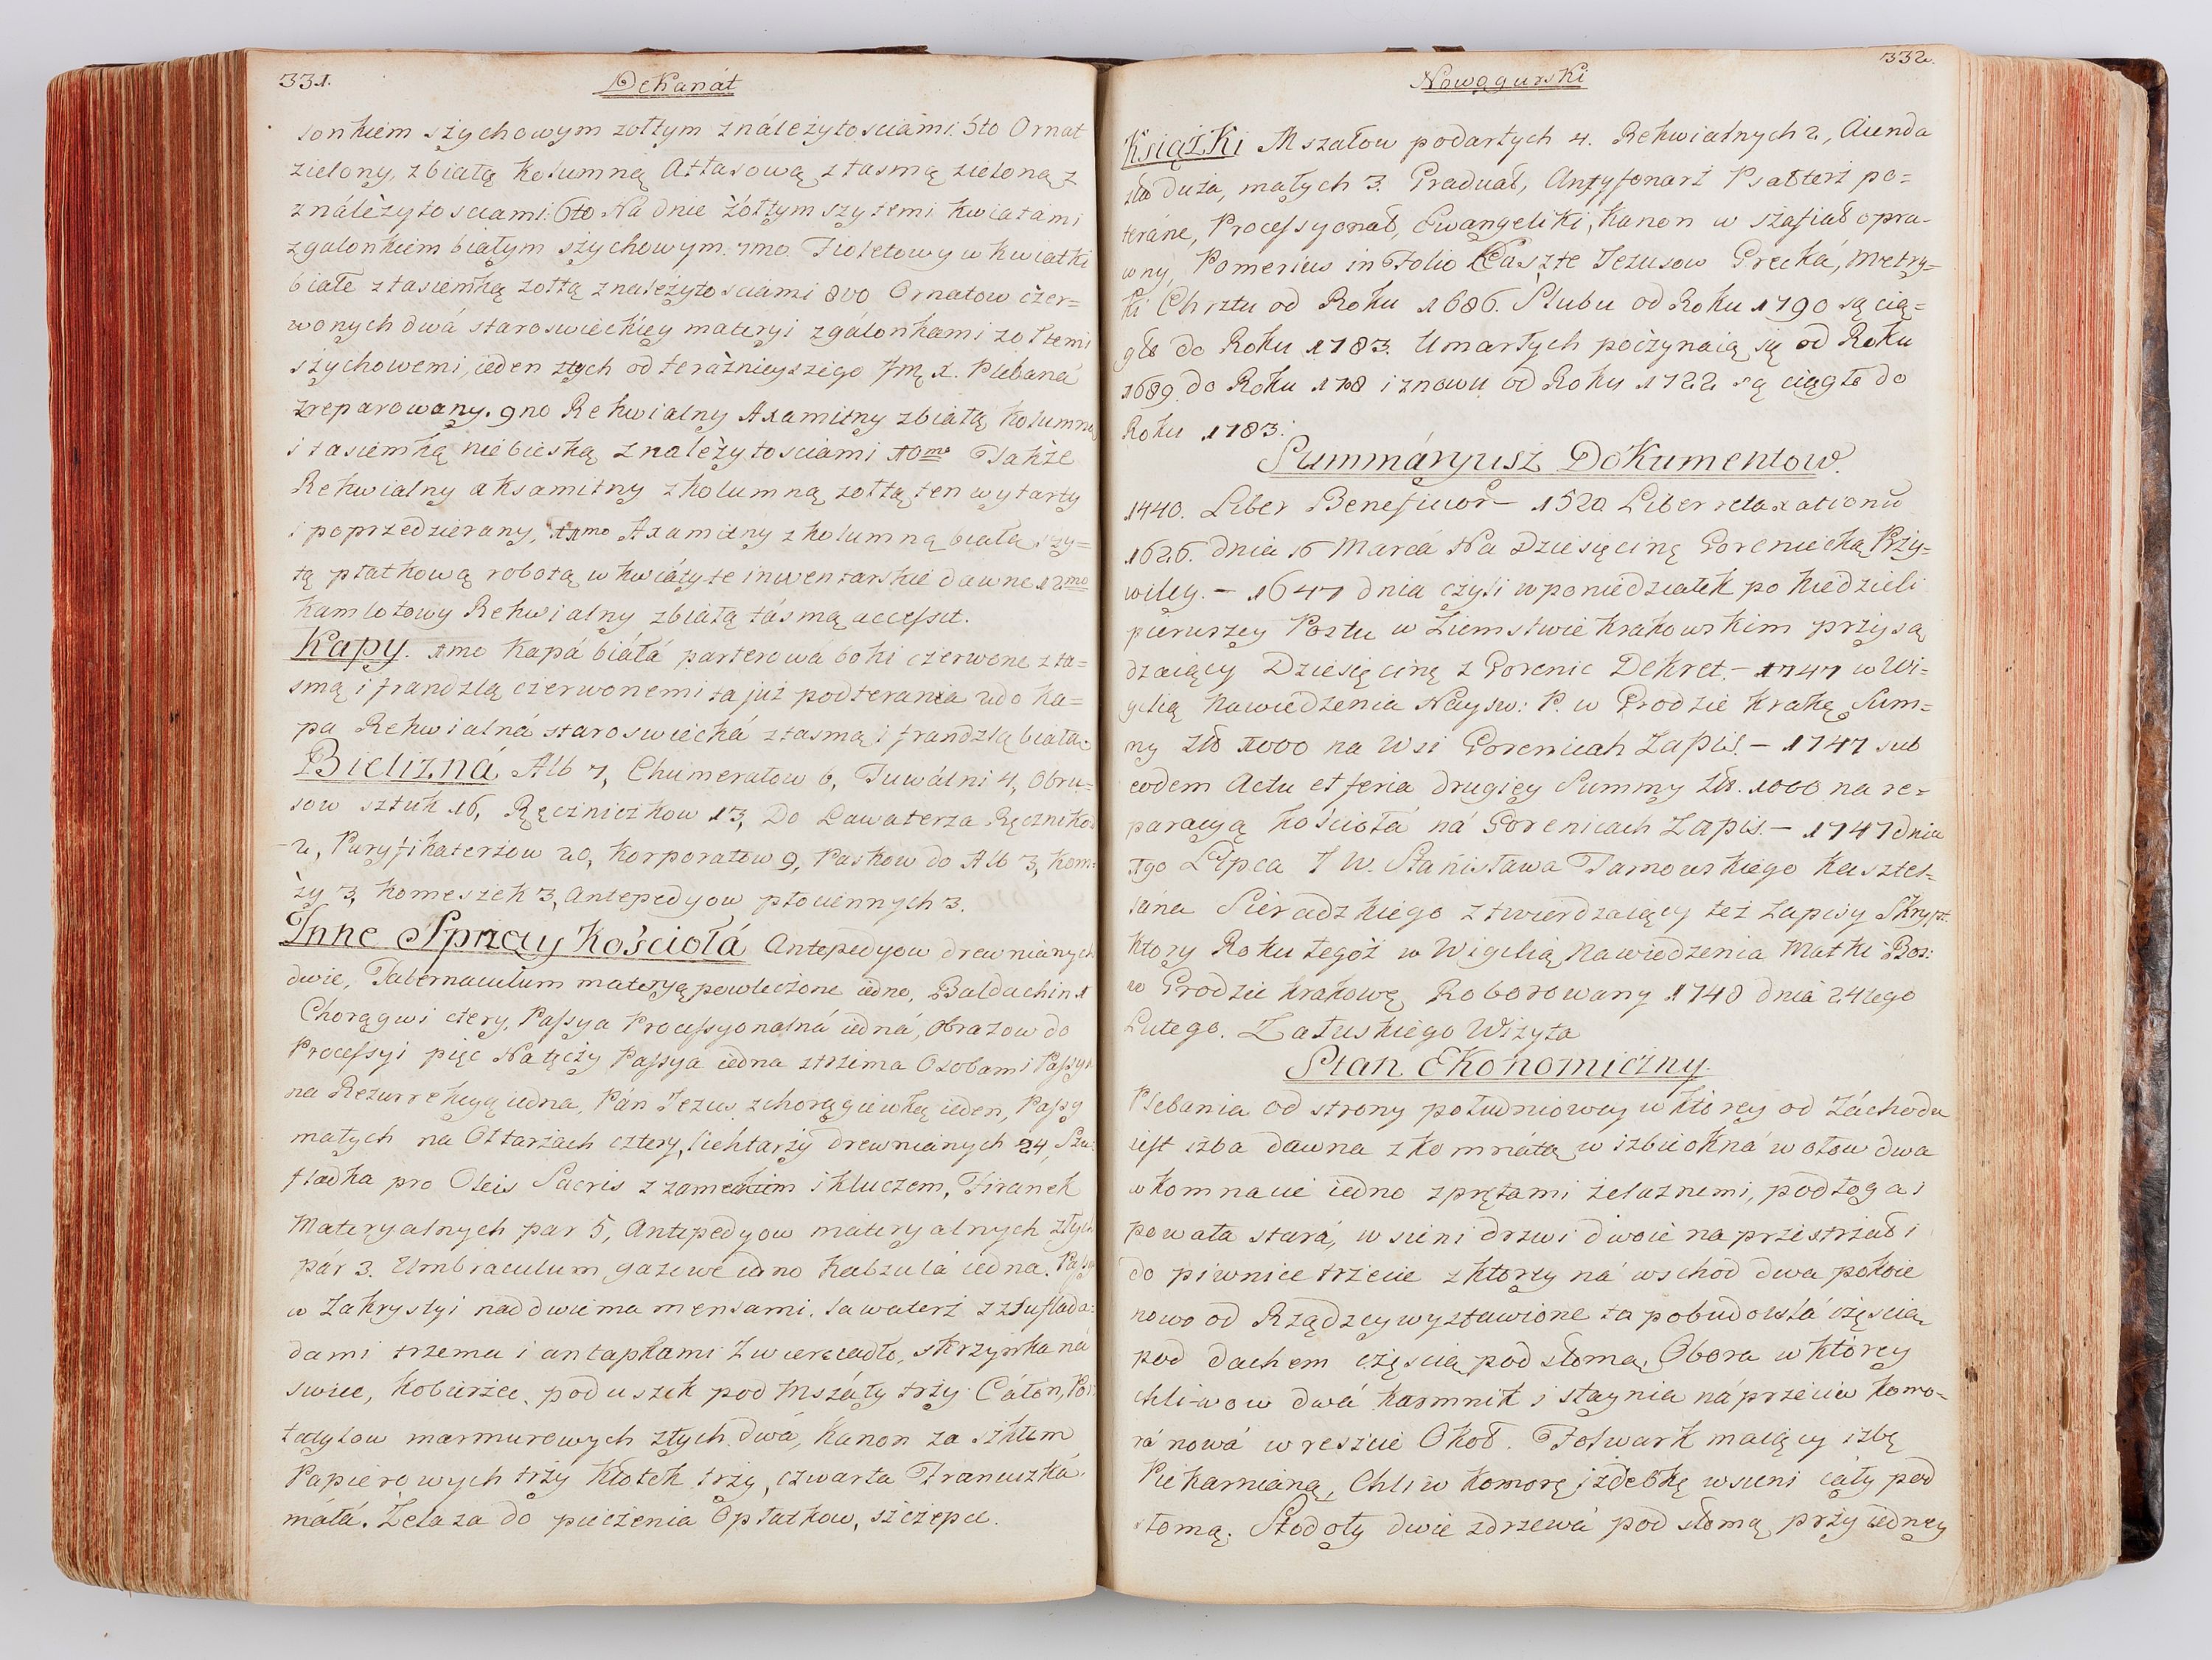 331.
Dekanát
sonkiem szychowym zołtym ználeżytosciámi. 5to Ornat
zielony, zbiałą Kolumną Attasową z tasmą zieloną z
ználeżytosciami. 6to Na dnie żółtym szytemi kwiatámi
zgalonkiem białym szychowym. 7mo. Fioletowy w kwiatki
białe ztasiemką zołtą znależytosciámi 8vo Ornatow czer=
wonych dwá staroswieckiey materyi zgálonkami zołtemi
szychowemi, ieden ztych od teráżnieyszego Jmę x. Plebaná
zreparowany. 9no Rekwialny Axamitny zbiałą kolumną
i tasiemką niebieską znależytosciámi 10mo Także
Rekwialny aksamitny zkolumną zołtą ten wytarty
i poprzedzierany, 11mo Axamitny zkolumną białą szy=
tą płatkową robotą w kwiáty te inwentarskie dawne 12mo
Kamlotowy Rekwialny zbiałą tásmą accessit.
Kapy. 1mo Kapá biáłá parterowa boki czerwone z ta=
smą i frandzlą czerwonemi ta już podterania 2do Ka=
pa Rekwialná staroswiecká ztasmą i frandzlą białą.
Bielizná Alb 7, Chumerałow 6, Tuwálni 4, Obru=
sow sztuk 16, Ręczniczkow 13, Do Lawaterza Ręcznikow
2, Puryfikaterzow 20, Korporałow 9, Paskow do Alb 3, Kom=
ży 3, Komeszek 3, Antepedyow płociennych 3.
Inne Sprzęty Kościołá Antepedyow drewnianych
dwie, Tabernaculum materyą powleczone iedno, Baldachin 1
Chorągwi cztery, Passya Processyonalná iedná, Obrazow do
Processyi pięc Na tęczy Passya iedna ztrzema Osobami Passya
na Rezurrekcyą iedna, Pán Jezus zchorągiewką ieden, Passy
małych na Ołtarżach cztery, lichtarży drewnianych 24, Szu=
fladka pro Oleis Sacris z zamekiem i kluczem, Firanek
Materyalnych par 5, Antepedyow materyalnych złych
pár 3. Umbraculum gazowe iedno Kabzulá iedna. Passya
w Zakrystyi nad dwiema mensami. Lawaterż z szuflada=
dami trzema i antapkami Zwierciadło, skrzynka ná
swiece, Kobierżec, poduszek pod Mszáły trży Cálon, Por=
tatylow marmurowych złych dwá, Kanon za szkłem
Papierowych trży Kłotek trży, czwarta Francuzká
máłá. Żelaza do pieczenia Opłatkow, szczepce.
332.
Nowągurski
Książki Mszałow podartych 4. Rekwialnych 2, Aienda
sta duża, małych 3. Graduał, Antyfonarż Psałterż po=
teráne, Processyonał, Ewangeliki, Kanon w szafiał opra-
wny, Pomerius in Folio Paszte Jezusow Grecká, Metry=
ki Chrztu od Roku 1686. Slubu od Roku 1790 są cią=
głe do Roku 1783. Umarłych poczynaią się od Roku
1689 do Roku 1718 i znowu od Roku 1722 są ciągłe do
Roku 1783.
Summáryusz Dokumentow.
1440. Liber Beneficior – 1520 Liber retaxationũ
1626. dnia 16 Marcá Na Dziesięcinę Goreniecką Przy=
wiley. – 1647 dnia czyli w poniedziałek po Niedzieli
pierwszey Postu w Ziemstwie Krákowskim przysą
dzaiący Dziesięcinę z Gorenic Dekret. – 1747 w Wi=
gilią Nawiedzenia Nayśw: P. w Grodzie Krakę Sum=
my zło 1000 na Wsi Gorenicah Zapis. – 1747 sub
eodem Actu et feria drugiey Summy Zło. 1000 na re=
paracyą kościołá ná Gorenicach Zapis. – 1747 dnia
1go Lipca J W. Stanisława Tarnowskiego Kasztel=
lána Sieradzkiego ztwierdzaiący też zapisy Skrypt.
Ktory Roku tegoż w Wigilią Nawiedzenia Matki Bos:
w Grodzie Krakowę Roborowany 1748 dniá 24tego
Lutego. Załuskiego Wizyta
Stan Ekonomiczny.
Plebania od strony południowey w ktorey od Záchodu
iest izba dawna zkomnátą w izbie okná w ołow dwa
w komnacie iedno zprętami żelaznemi, podłoga i
powała stará, w sieni drzwi dwoie na przestrzał i
do piwnice trzecie zktorzy ná wschod dwa pokoie
nowo od Rządzcy wystawione ta pobudowlá częścią
pod dachem częścią pod słomą. Obora w ktorey
chliwow dwá karmnik i staynia náprzeciw komo-
rá nowá w reszcie Okoł. Folwark maiący izbę
Piekarnianą, Chliw komorę, izdebkę w sieni cáły pod
słomą. Stodoły dwie zdrzewá pod słomą przy iedney